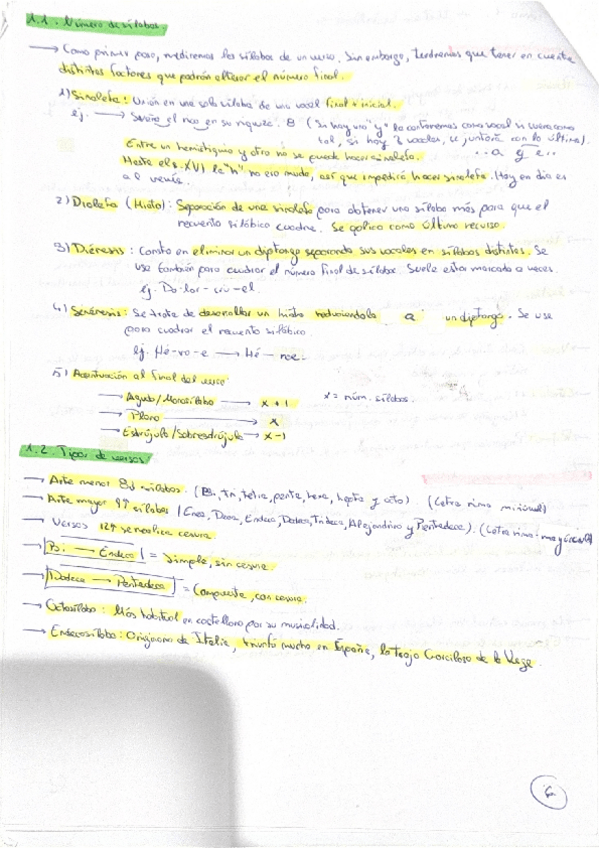 1.1. Número de sílabas.
→ Como primer paso, mediremos las sílabas de un verso. Sin embargo, tendremos que tener en cuenta
distintos factores que podrán alterar el número final.
1) Sinalefa: Unión en una sola sílaba de una vocal final e inicial.
ej. → el nao en su riqueza. 8 (Si hay una "y" la contaremos como vocal si suena como
tal, si hay 2 vocales, se juntará con la última).
Entre un hemistiquio y otro no se puede hacer sinalefa. ..a y e..
Hasta el s. XVI la "h" no era muda, así que impedirá hacer sinalefa. Hoy en día es
al revés.
2) Dialefa (Hiato): Separación de una sinalefa para obtener una sílaba más para que el
recuento silábico cuadre. Se aplica como último recurso.
3) Diéresis: Consta en eliminar un diptongo separando sus vocales en sílabas distintas. Se
usa también para cuadrar el número final de sílabas. Suele estar marcado a veces.
ej. Do-lor-crü-el.
4) Sinéresis: Se trata de desarrollar un hiato reduciéndolo a un diptongo. Se usa
para cuadrar el recuento silábico.
ej. Hé-ro-e → Hé-roe.
5) Acentuación al final del verso
→ Aguda/Monosílaba → x+1 x = núm. sílabas.
→ Plana → x
→ Esdrújula/Sobresdrújula → x-1
1.2. Tipos de versos:
→ Arte menor 8↓ sílabas. (Bi, tri, tetra, penta, hexa, hepta y octo). (Letra rima minúscul)
→ Arte mayor 9↑ sílabas (Enea, Deca, Endeca, Dodeca, Trideca, Alejandrino y Pentadeca). (Letra rima: mayúscula)
→ Versos 12↑ se realiza cesura.
→ Bi → Endeca = Simple, sin cesura.
→ Dodeca → Pentadeca = Compuesto, con cesura.
→ Octosílabo: Más habitual en castellano por su musicalidad.
→ Endecasílabo: Originario de Italia, triunfó mucho en España, lo trajo Garcilaso de la Vega.